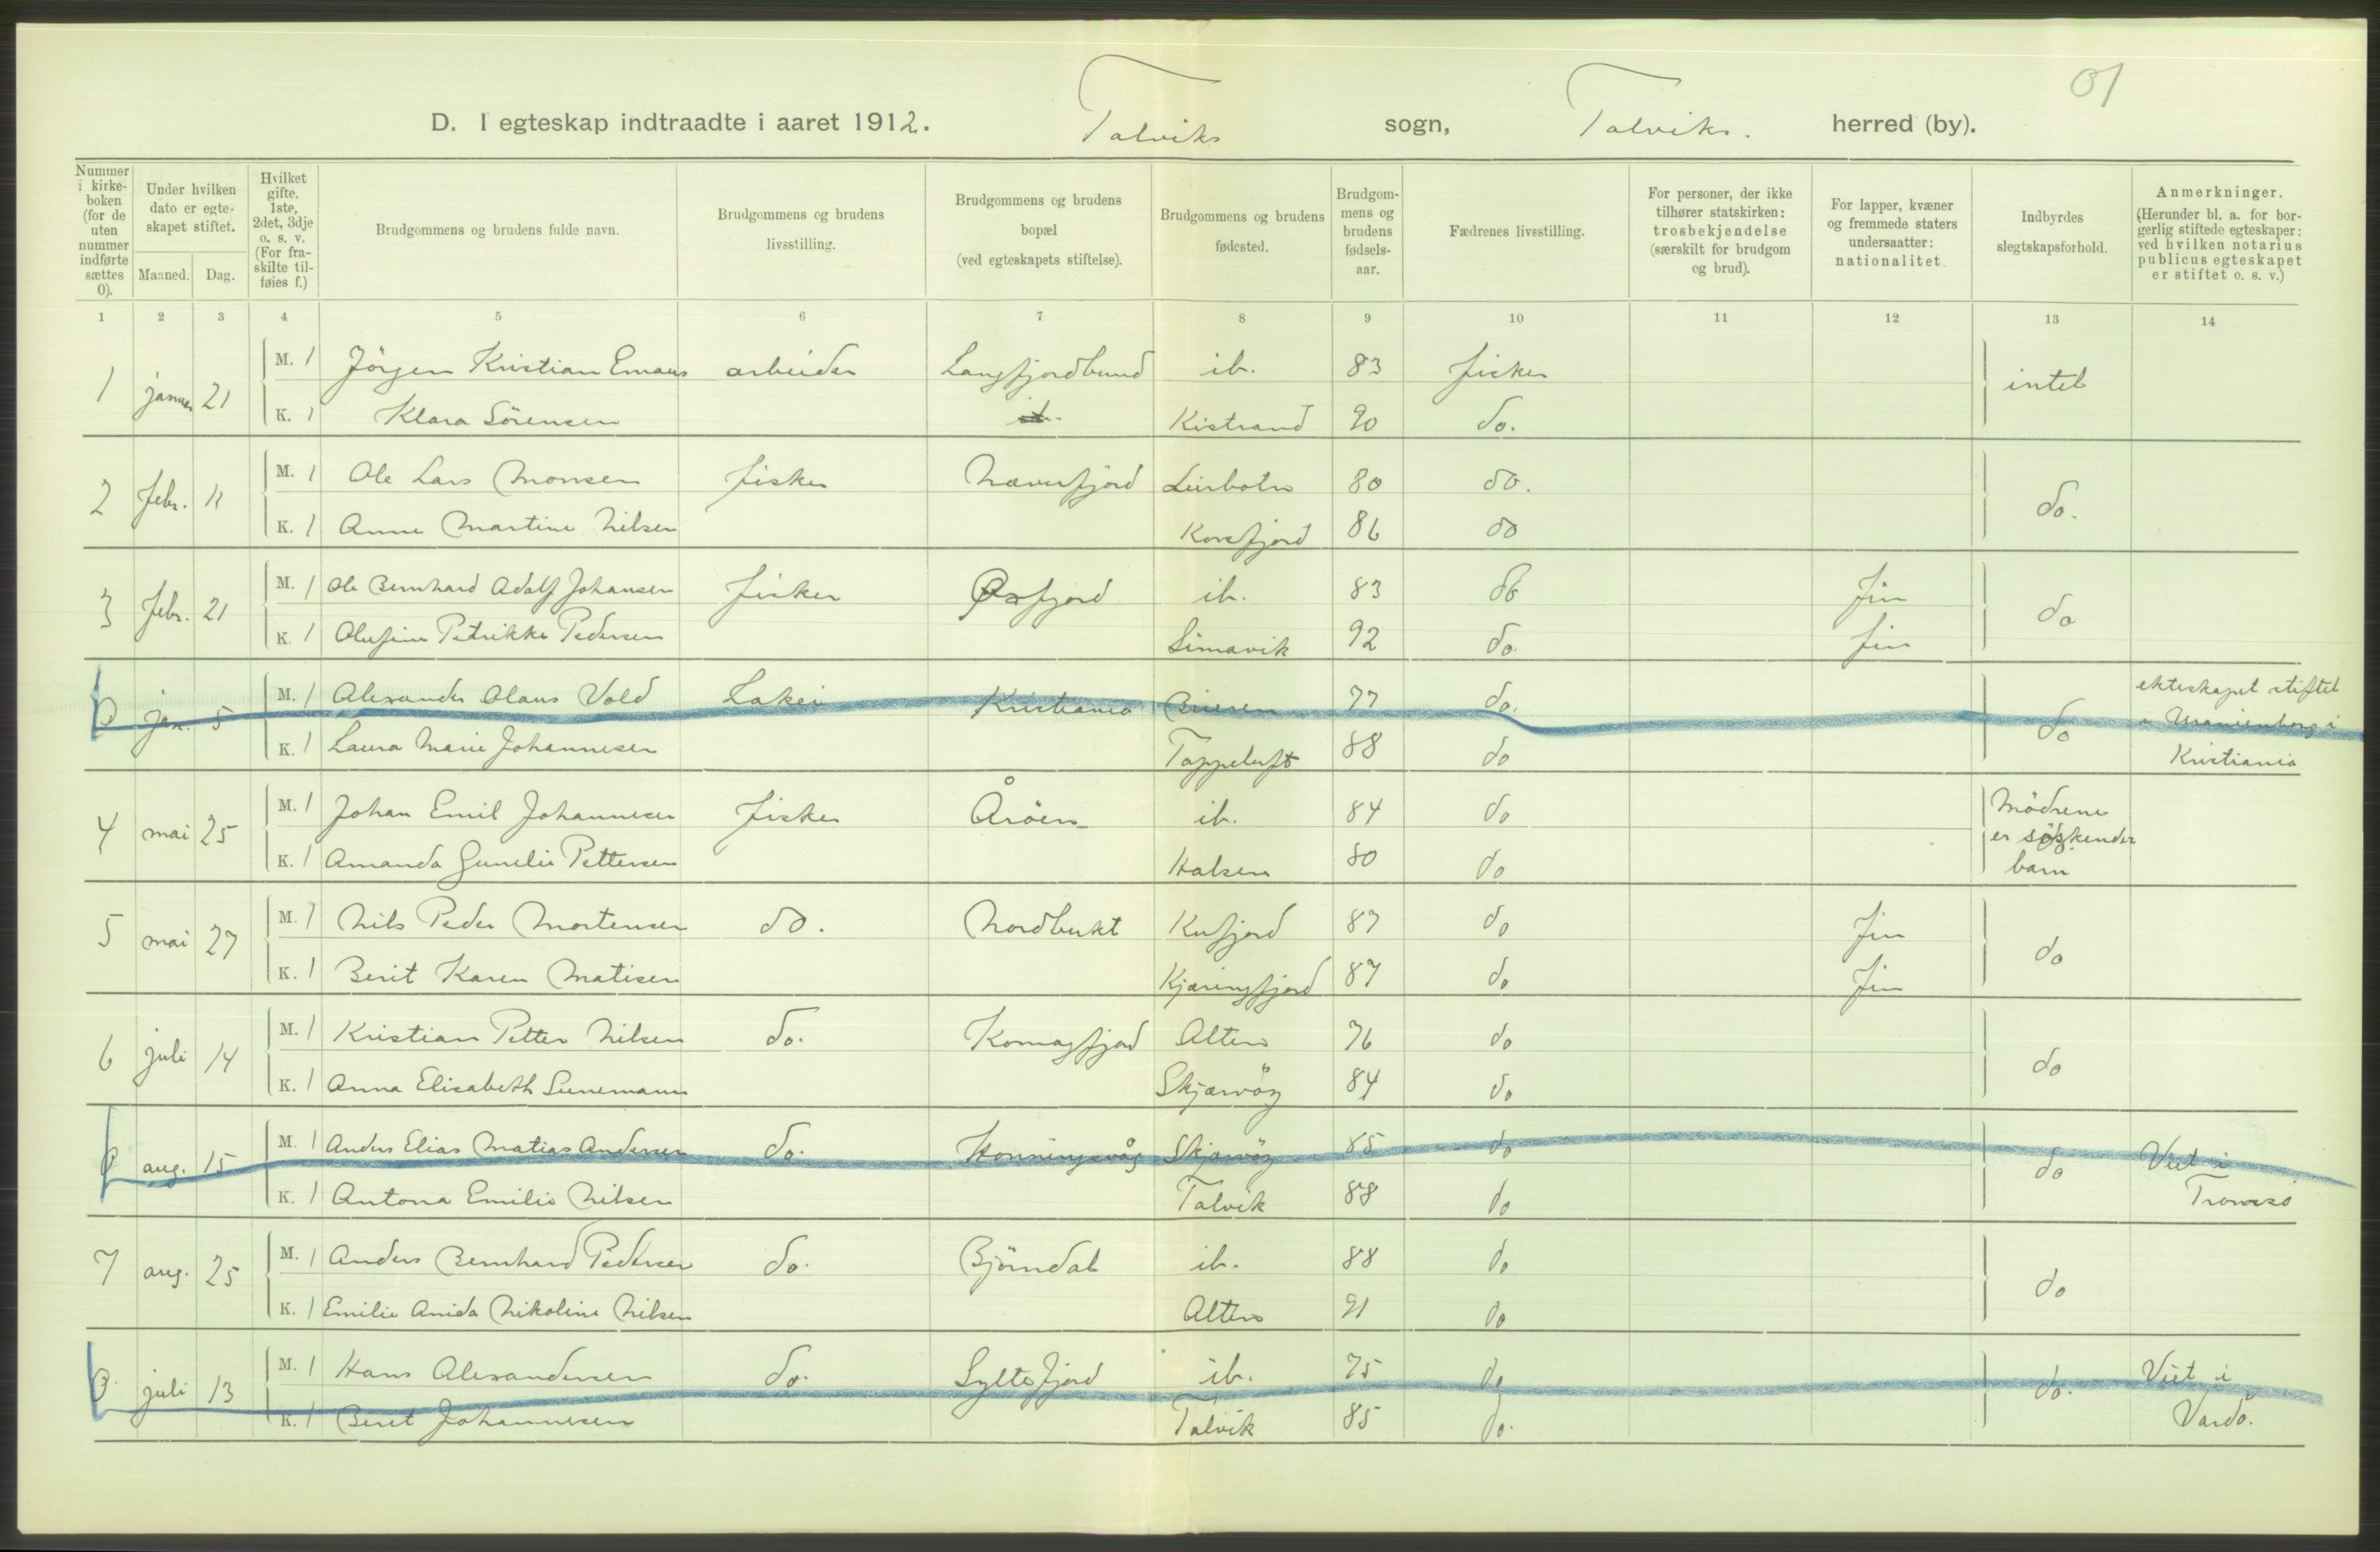 01
D. I egteskap indtraadte i aaret 1912. Talviks sogn, Talviks. herred (by).
Nummer i kirkeboken (for de uten nummer indførte sættes 0).
Under hvilken dato er egteskapet stiftet.
Maaned. Dag.
Hvilket gifte. 1ste, 2det, 3dje o. s. v. (For fraskilte tilføies f.)
Brudgommens og brudens fulde navn.
Brudgommens og brudens livsstilling.
Brudgommens og brudens bopæl (ved egteskapets stiftelse).
Brudgommens og brudens fødested.
Brudgommens og brudens fødselsaar.
Fædrenes livsstilling.
For personer, der ikke tilhører statskirken: trosbekjendelse (særskilt for brudgom og brud).
For lapper, kvæner og fremmede staters undersaatter: nationalitet.
Indbyrdes slegtskapsforhold.
Anmerkninger. (Herunder bl. a. for borgerlig stiftede egteskaper: ved hvilken notarius publicus egteskapet er stiftet o. s. v.)
1 2 3 4 5 6 7 8 9 10 11 12 13 14
1 januar 21 M. 1 Jörgen Kristian Emaus arbeider Langfjordbund ib. 83 fisker intet
K. 1 Klara Sörensen Kistrand 90 do.
2 febr. 11 M. 1 Ole Lars Monsen fisker Næverfjord Leirbotn 80 do. do.
K. 1 Anne Martine Nilsen Korsfjord 86 do
3 febr. 21 M. 1 Ole Bernhard Adolf Johansen fisker Øxfjord ib. 83 do fin do
K. 1 Olufine Petrikke Pedersen Simavik 92 do. fin
0 jan. 5 M. 1 Alexander Olaus Vold Lakei Kristiania 77 do. do ekteskapet stiftet
i Uranienborg i
K. 1 Laura Marie Johannesen Tappeluft 88 do Kristiania
4 mai 25 M. 1 Johan Emil Johannesen fisker Åröen ib. 84 do Mödrene
er söskende
K. 1 Amanda Gunelie Pettersen Halsen 80 do barn
5 mai 27 M. 1 Nils Peder Mortensen do. Nordbukt Kufjord 87 do fin do
K. 1 Berit Karen Matisen Kjæringfjord 87 do fin
6 juli 14 M. 1 Kristian Petter Nilsen do. Komagfjord Alten 76 do do
K. 1 Anna Elisabeth Sunemann Skjærvöy 84 do
0 aug. 15 M. 1 Anders Elias Matias Andersen do. Honningsvåg Skjærvöy 85 do do Viet i
K. 1 Antona Emilie Nilsen Talvik 88 do Tromsø
7 aug. 25 M. 1 Anders Bernhard Pedersen do. Björndal ib. 88 do do
K. 1 Emilie Anida Nikoline Nilsen Alten 91 do
0. juli 13 M. 1 Hans Alexandersen do. Syltefjord ib. 75 do do. Viet i
K. 1 Berit Johannesen Talvik 85 do. Vardö.